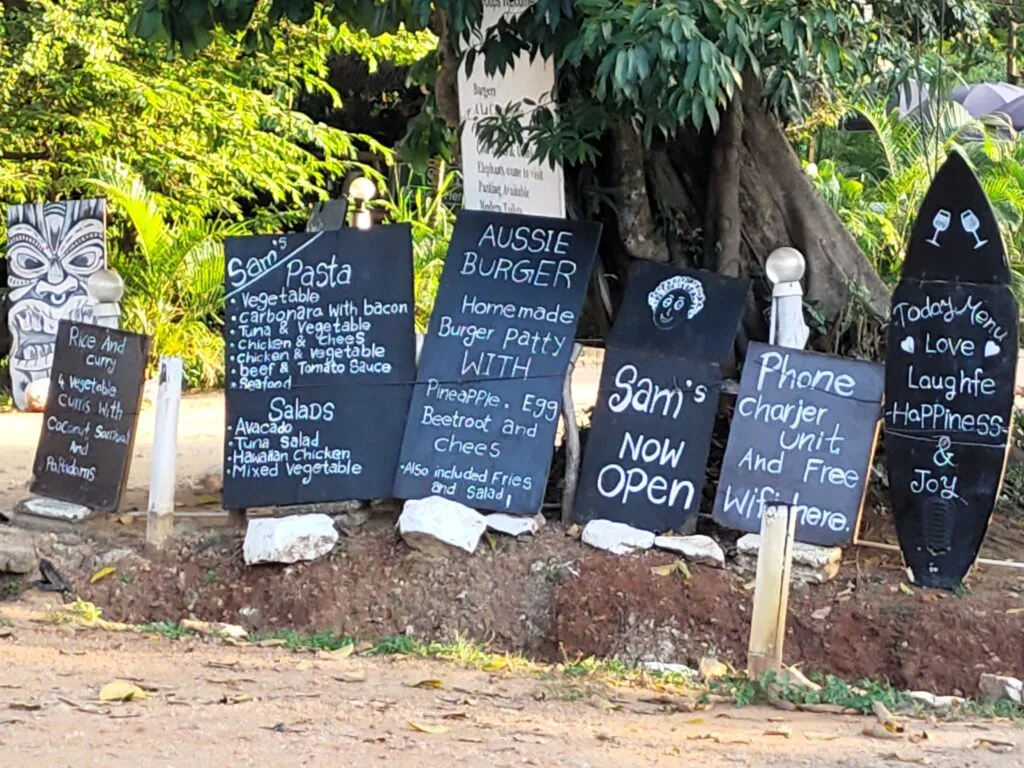 Burgers
Elephants come to visit
Parking Available
Modern Toilets
Rice And
curry
4 vegetable
curris with
Coconut Sambal
And
Papadams
Sam's
Pasta
• Vegetable
• carbonara with bacon
• Tuna & Vegetable
• Chicken & Chees
• Chicken & Vegetable
• beef & Tomato Sauce
• Seafood
SALADS
• Avacado
• Tuna Salad
• Hawaiian Chicken
• Mixed Vegetable
AUSSIE
BURGER
Homemade
Burger Patty
WITH
Pineapple, Egg
Beetroot and
chees
•Also included Fries
and Salad,
Sam's
NOW
OPEN
Phone
charjer
unit
And Free
Wifi here.
Today Menu
Love
Laughfe
-HaPPiness-
&
Joy